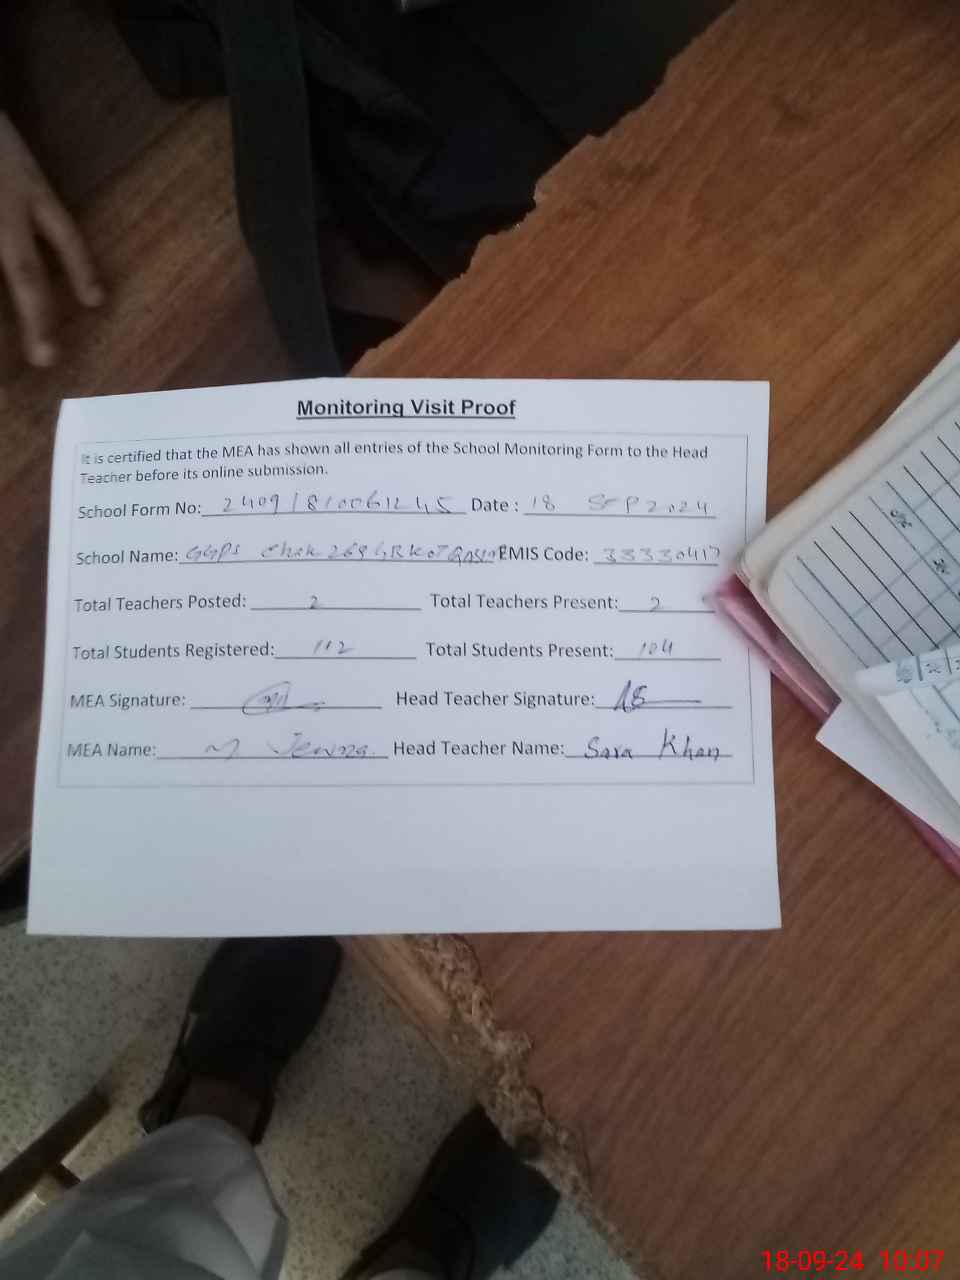 Monitoring Visit Proof
It is certified that the MEA has shown all entries of the School Monitoring Form to the Head
Teacher before its online submission.
School Form No: 24091810061245 Date : 18 SEP 2024
School Name: GGPS Chak 269 EMIS Code: 33330417
Total Teachers Posted: 2 Total Teachers Present: 2
Total Students Registered: 112 Total Students Present: 104
MEA Signature: Head Teacher Signature:
MEA Name: M Head Teacher Name: Sara Khan
18-09-24 10:07